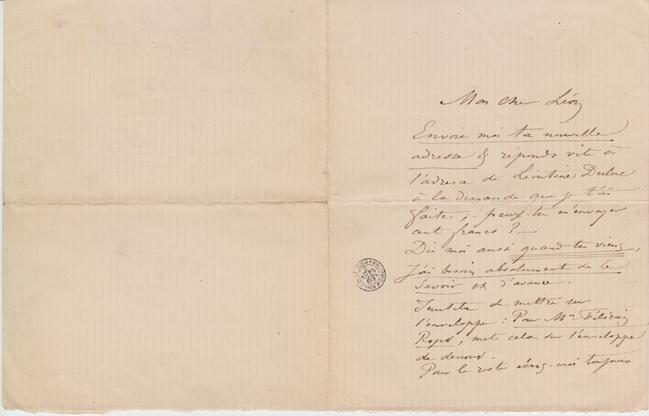 Mon cher Léon
Envoie moi ta nouvelle
adresse & réponds vite à
l'adresse de Léontine Duluc
à la demande que je t'ai
faite ; - peux-tu m'envoyer
cent francs ? -
Dis moi aussi quand tu viens,
J'ai besoin absolument de le
savoir et d'avance.
Inutile de mettre sur
l'enveloppe : Pour Mr Félicien
Rops, mets cela sur l'enveloppe
de dessous.
Pour le reste écris-moi toujours